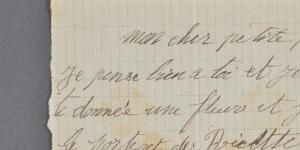 mon cher petite
Je pense bien a toi et
te donnée une fleur et
le portrait de